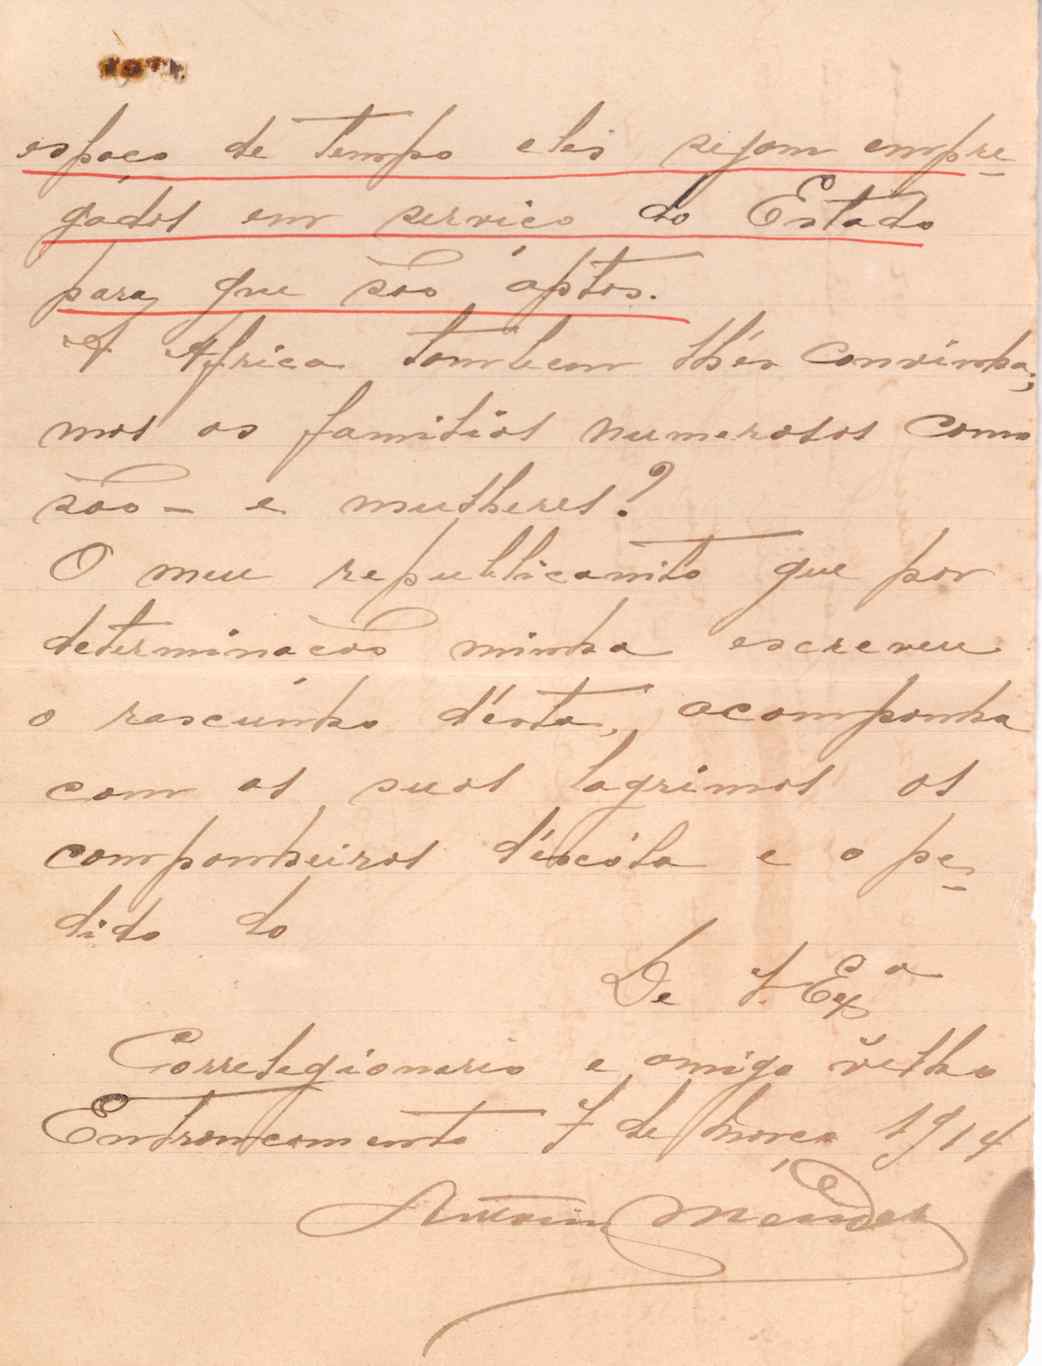 espaço de tempo eles sejam empre-
gados em serviço do Estado
para que são áptos.
A Africa tambem lhes convinha;
mas as familias numerosas como
são - e mulheres?
O meu republicanito que por
determinacão minha escreveu
o rascunho d'esta, acompanha
com as suas lagrimas os
companheiros d'escóla e o pe-
dido do
De V. Exª
Correlegionario e amigo velho
Entroncamento 7 de março 1914
Antonio Mendes